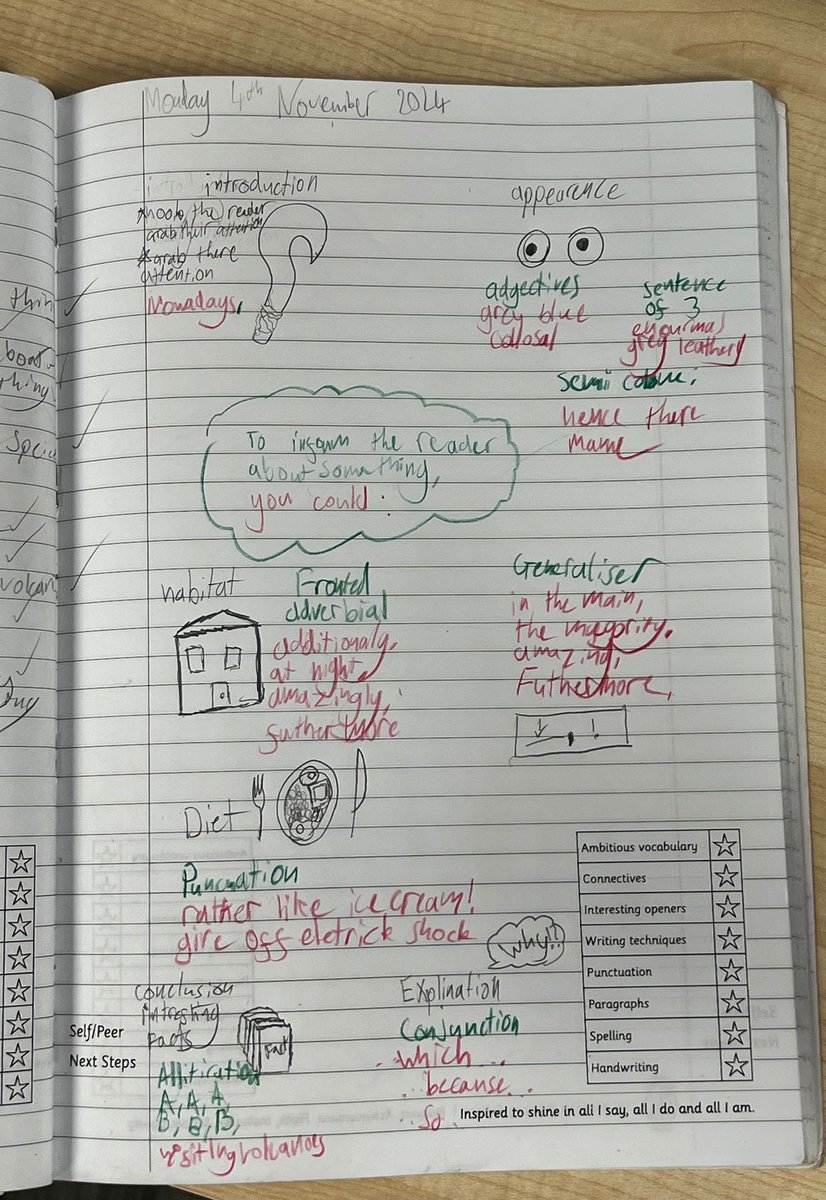 Monday 4th November 2024
introduction
hook the reader
grab their attention
grab there
attention
Nowadays,
appearence
adgectives
grey blue
collosal
sentence
of 3
enourmas
grey leathery
semi colone;
hence there
mame
To ingorm the reader
about something,
you could:
habitat
Fronted
adverbial
additionaly,
at night,
amazingly,
futhermore
Generaliser
in the main,
the magority,
amazing,
Futhermore,
Diet
Puncuation
rather like ice cream!
give off eletrick shock
Why!?
conclusion
intresting
facts
Fact
Allitiration
A, A, A
B, B, B,
visiting volcanoes
Explination
Conjunction
..which...
..because...
..So..
thin
boat
thing
Speci
volcan
Self/Peer
Next Steps
Ambitious vocabulary
Connectives
Interesting openers
Writing techniques
Punctuation
Paragraphs
Spelling
Handwriting
Inspired to shine in all I say, all I do and all I am.